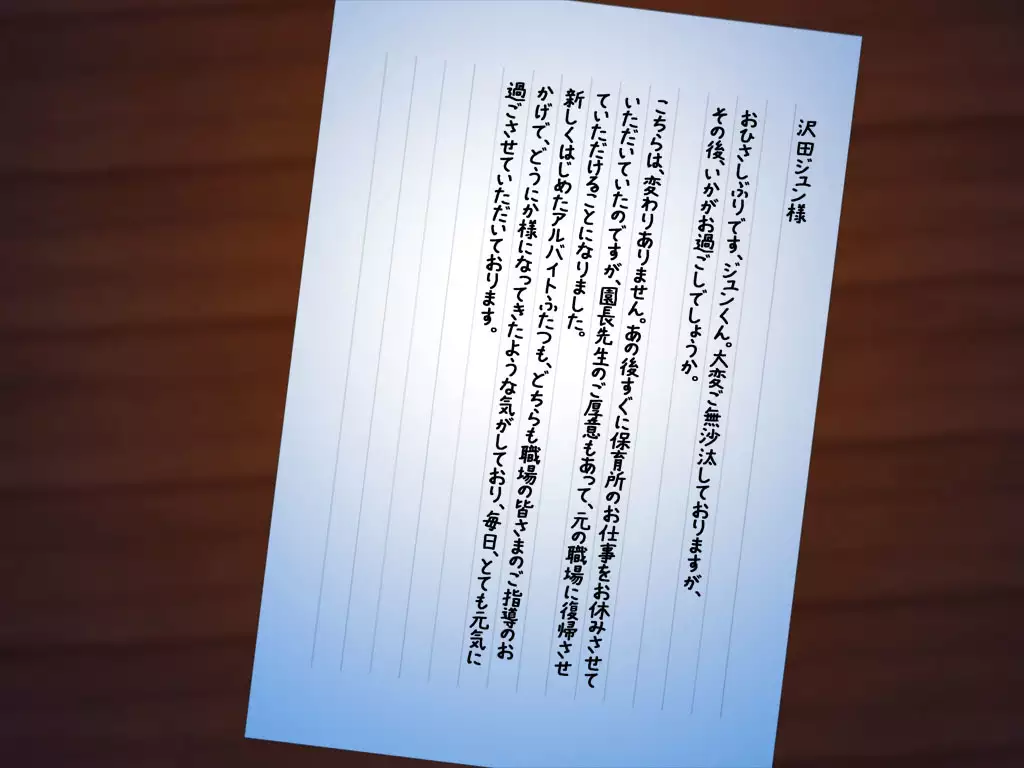 沢田ジュン様
おひさしぶりです、ジュンくん。大変ご無沙汰しておりますが、
その後、いかがお過ごしでしょうか。
こちらは、変わりありません。あの後すぐに保育所のお仕事をお休みさせて
いただいていたのですが、園長先生のご厚意もあって、元の職場に復帰させ
ていただけることになりました。
新しくはじめたアルバイトふたつも、どちらも職場の皆さまのご指導のお
かげで、どうにか様になってきたような気がしており、毎日、とても元気に
過ごさせていただいております。